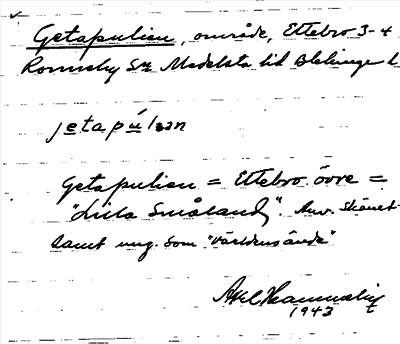 Getapulien, område, Ettebro 3-4
Ronneby Sn Medelsta hd Blekinge l
jetapúlɜn
Getapulien = Ettebro övre =
"Lilla Småland". Anv. skämt-
samt ung. som "världens ände"
Axel
1943